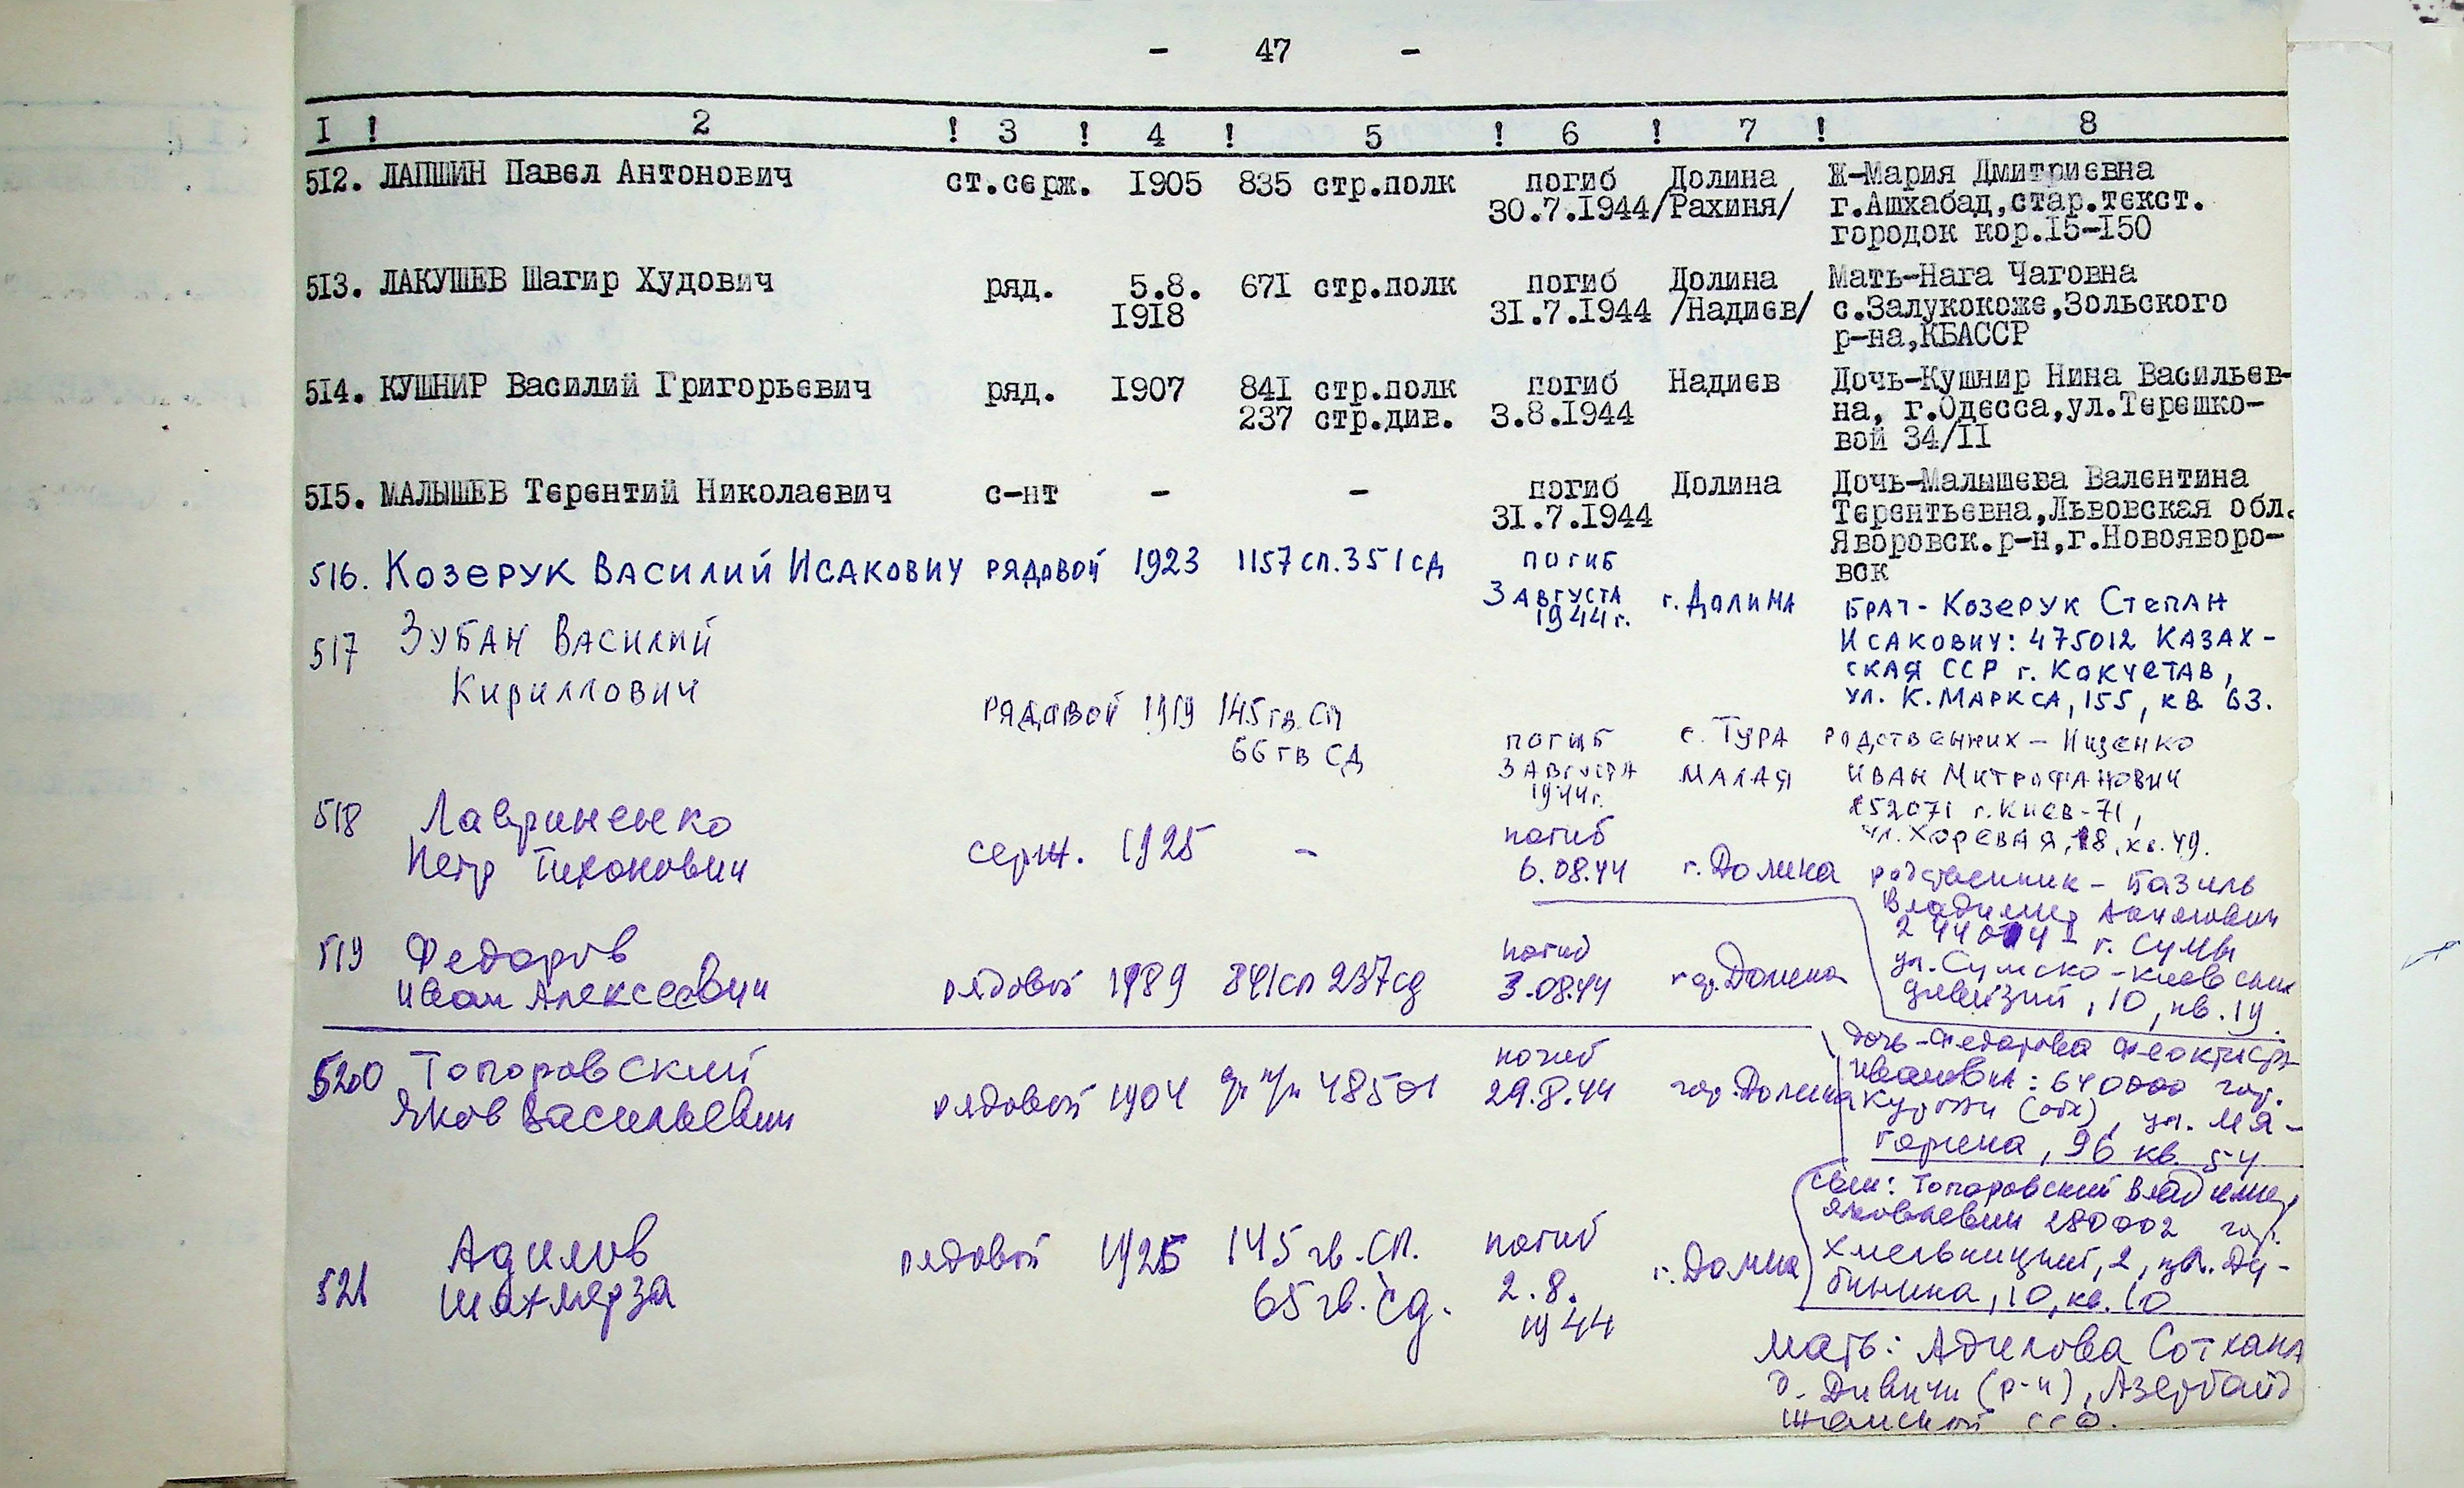 - 47 -
I ! 2 ! 3 ! 4 ! 5 ! 6 ! 7 ! 8
512. ЛАПШИН Павел Антонович ст.серж. 1905 835 стр.полк погиб Долина Ж-Мария Дмитриевна
30.7.1944 /Рахиня/ г.Ашхабад,стар.текст.
городок кор.15-150
513. ЛАКУШЕВ Шагир Худович ряд. 5.8. 671 стр.полк погиб Долина Мать-Нага Чаговна
1918 31.7.1944 /Надиев/ с.Залукокоже,Зольского
р-на,КБАССР
514. КУШНИР Василий Григорьевич ряд. 1907 841 стр.полк погиб Надиев Дочь-Кушнир Нина Васильев-
237 стр.див. 3.8.1944 на, г.Одесса,ул.Терешко-
вой 34/II
515. МАЛЫШЕВ Терентий Николаевич с-нт - - погиб Долина Дочь-Малышева Валентина
31.7.1944 Терентьевна,Львовская обл.
Яворовск.р-н,г.Новояворо-
вск
516. Козерук Василий Исакович рядовой 1923 1157 сп. 351 сд погиб
3 августа г. Долина Брат - Козерук Степан
1944 г. Исакович: 475012 Казах-
ская ССР г. Кокчетав,
ул. К. Маркса, 155, кв 63.
517 Зубан Василий
Кириллович
рядовой 1919 145 гв. сп
66 гв СД погиб с. Тура родственник - Ищенко
3 августа Малая Иван Митрофанович
1944 г. 252071 г. Киев-71,
ул. Хоревая, 18, кв. 49.
518 Лавриненко
Петр Тихонович серж. 1925 - погиб
6.08.44 г. Долина родственник - Базиль
Владимир
г. Сумы
ул. Сумско-Киевских
дивизий, 10, кв. 19.
519 Федоров
Иван Алексеевич рядовой 1989 841 сп 237 сд погиб
3.08.44 гор. Долина
дочь - Федорова
Ивановна: 640000 гор.
Курган (обл), ул. Мя-
96 кв. 54
520 Топоровский
Яков Васильевич рядовой 1904 48501 погиб
29.8.44 гор. Долина
сын: Топоровский Владимир
Яковлевич 280002 гор.
Хмельницкий, 2,
10, кв. 10
521 Адилов
Шахмирза рядовой 1925 145 гв. сп.
65 гв. сд. погиб
2.8.
1944 г. Долина
мать: Адилова Соткана
Дивичи (р-н), Азербайд
жанской ССР.